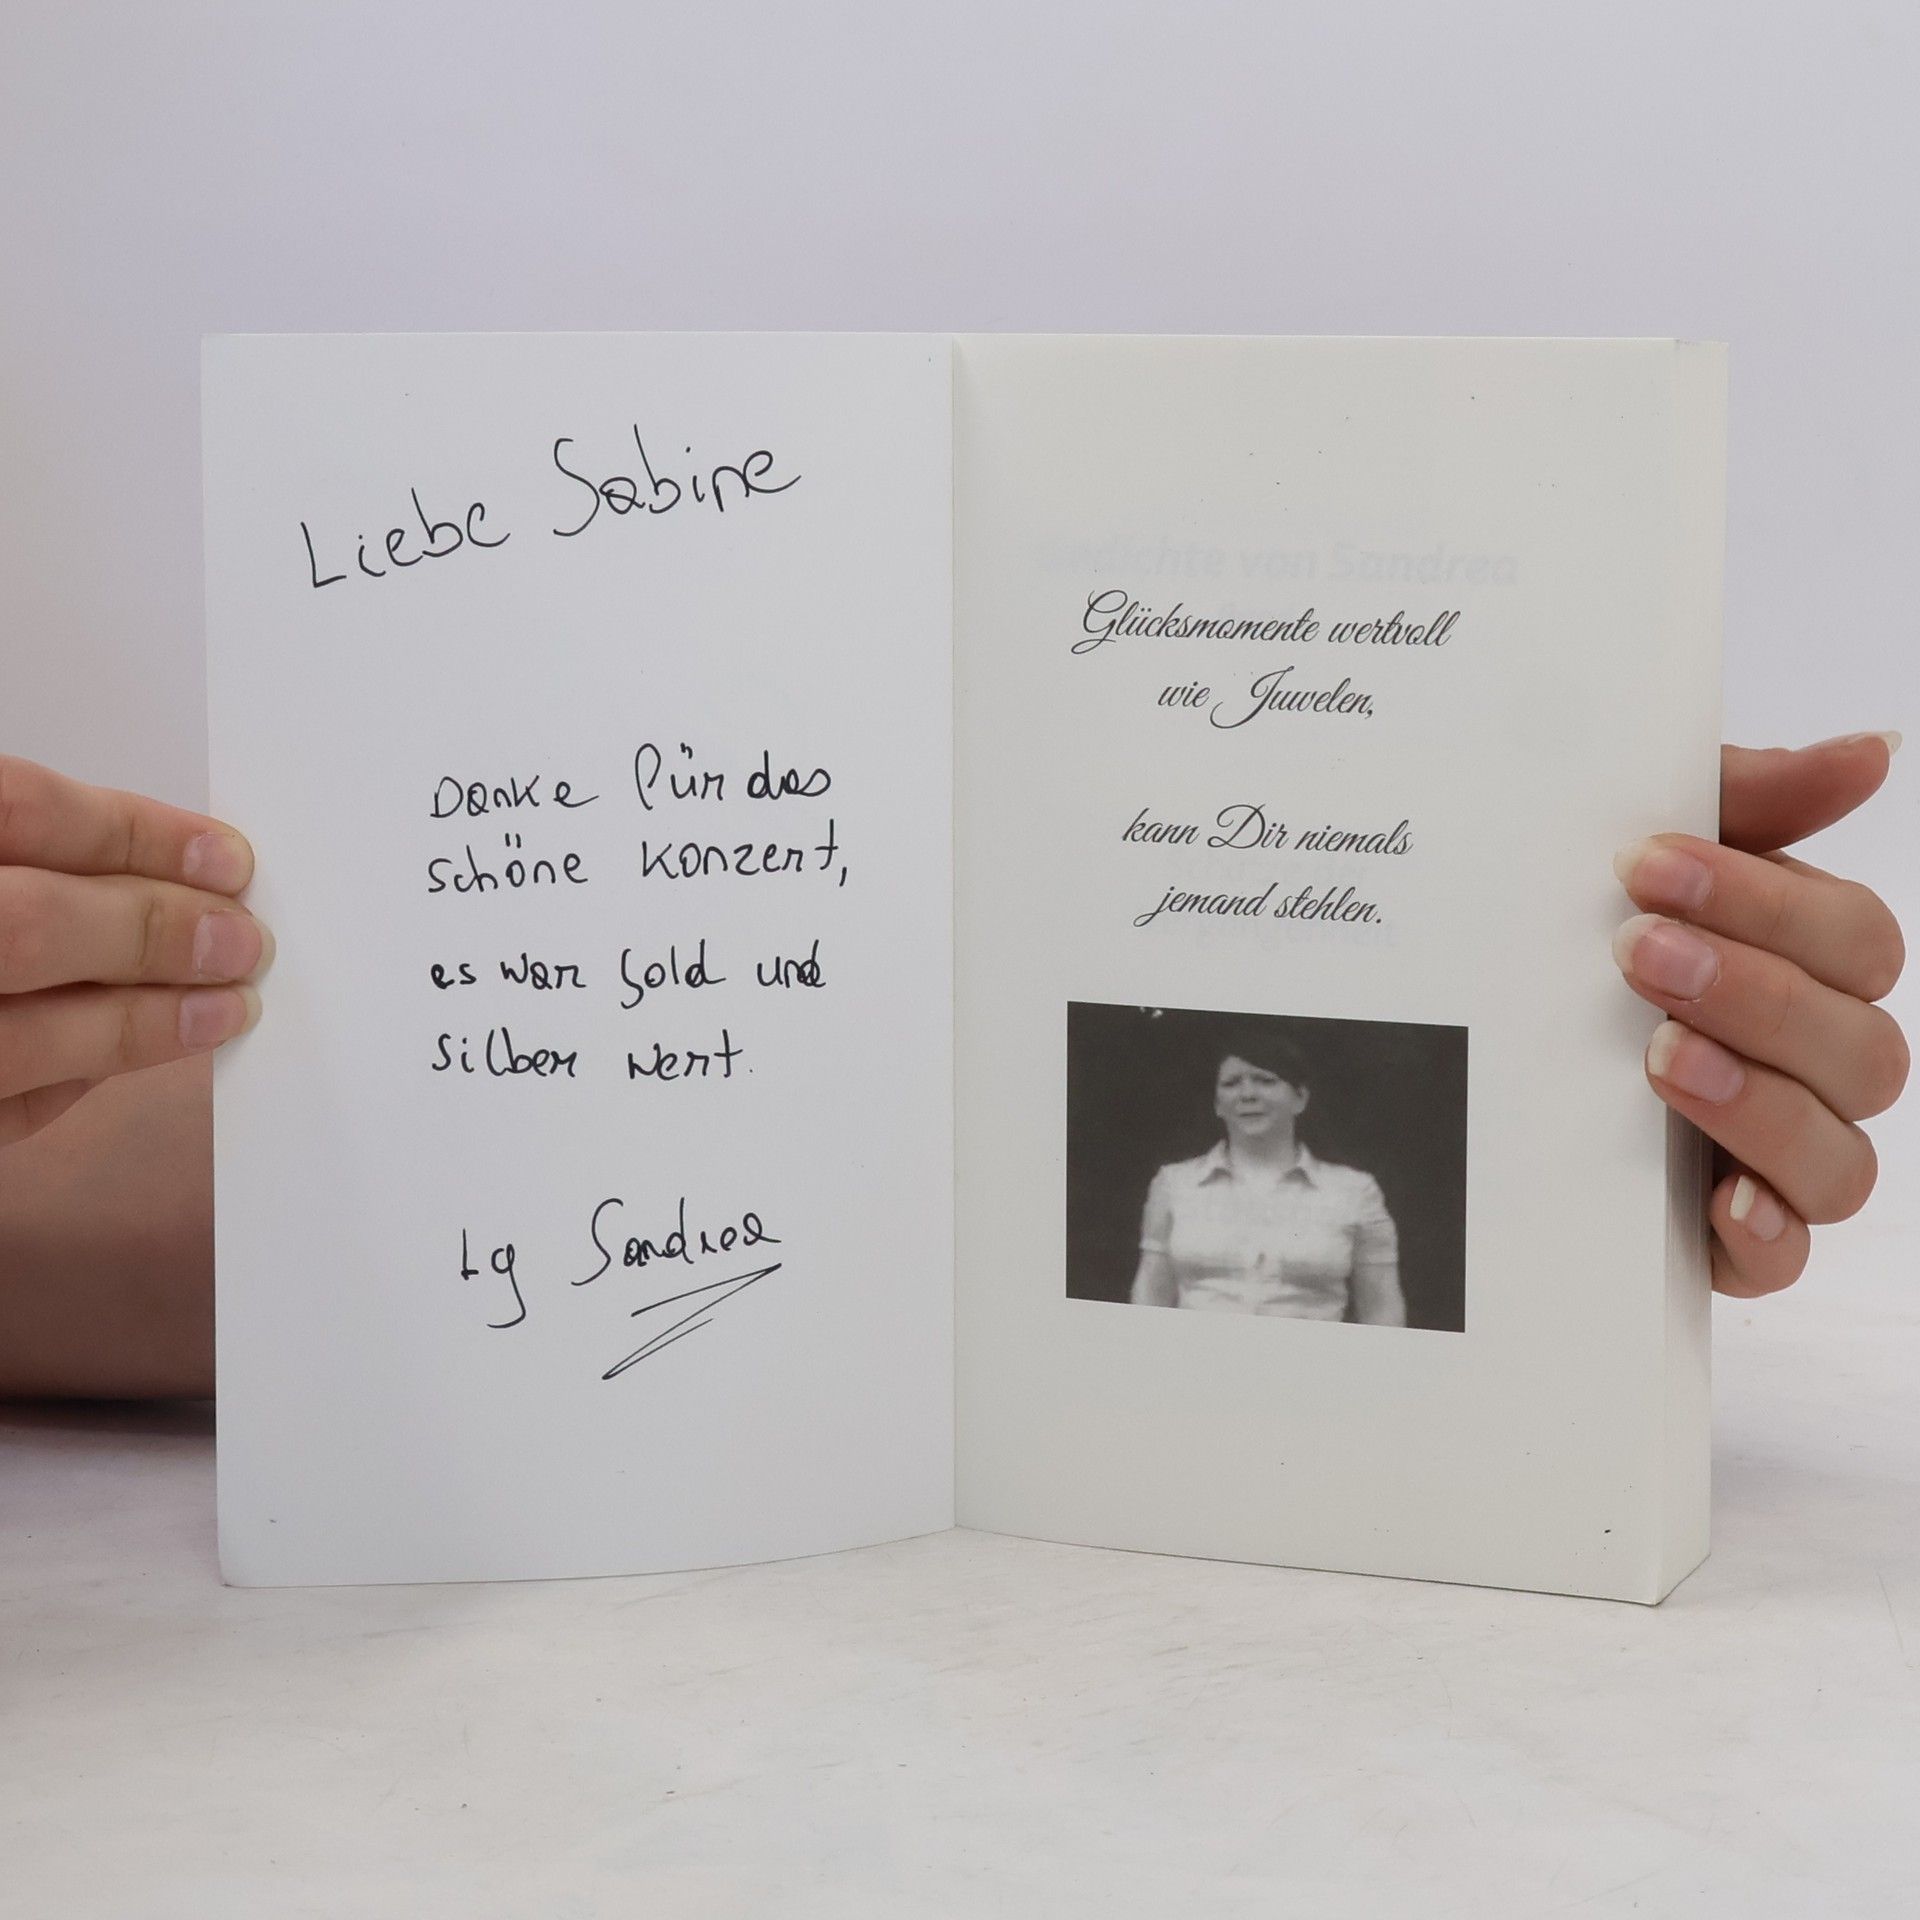 Liebe Sabine
Danke für das
schöne Konzert,
es war Gold und
Silber wert.
Lg Sandrea
Glücksmomente wertvoll
wie Juwelen,
kann Dir niemals
jemand stehlen.